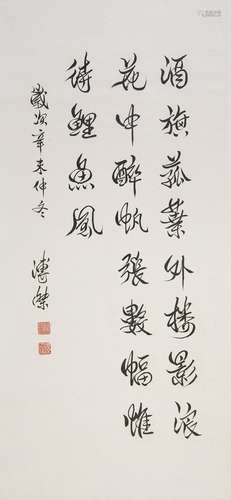 酒旗菰葉外樓影浪
花中醉帆張數幅惟
待鯉魚風
歲次辛未仲冬
溥傑